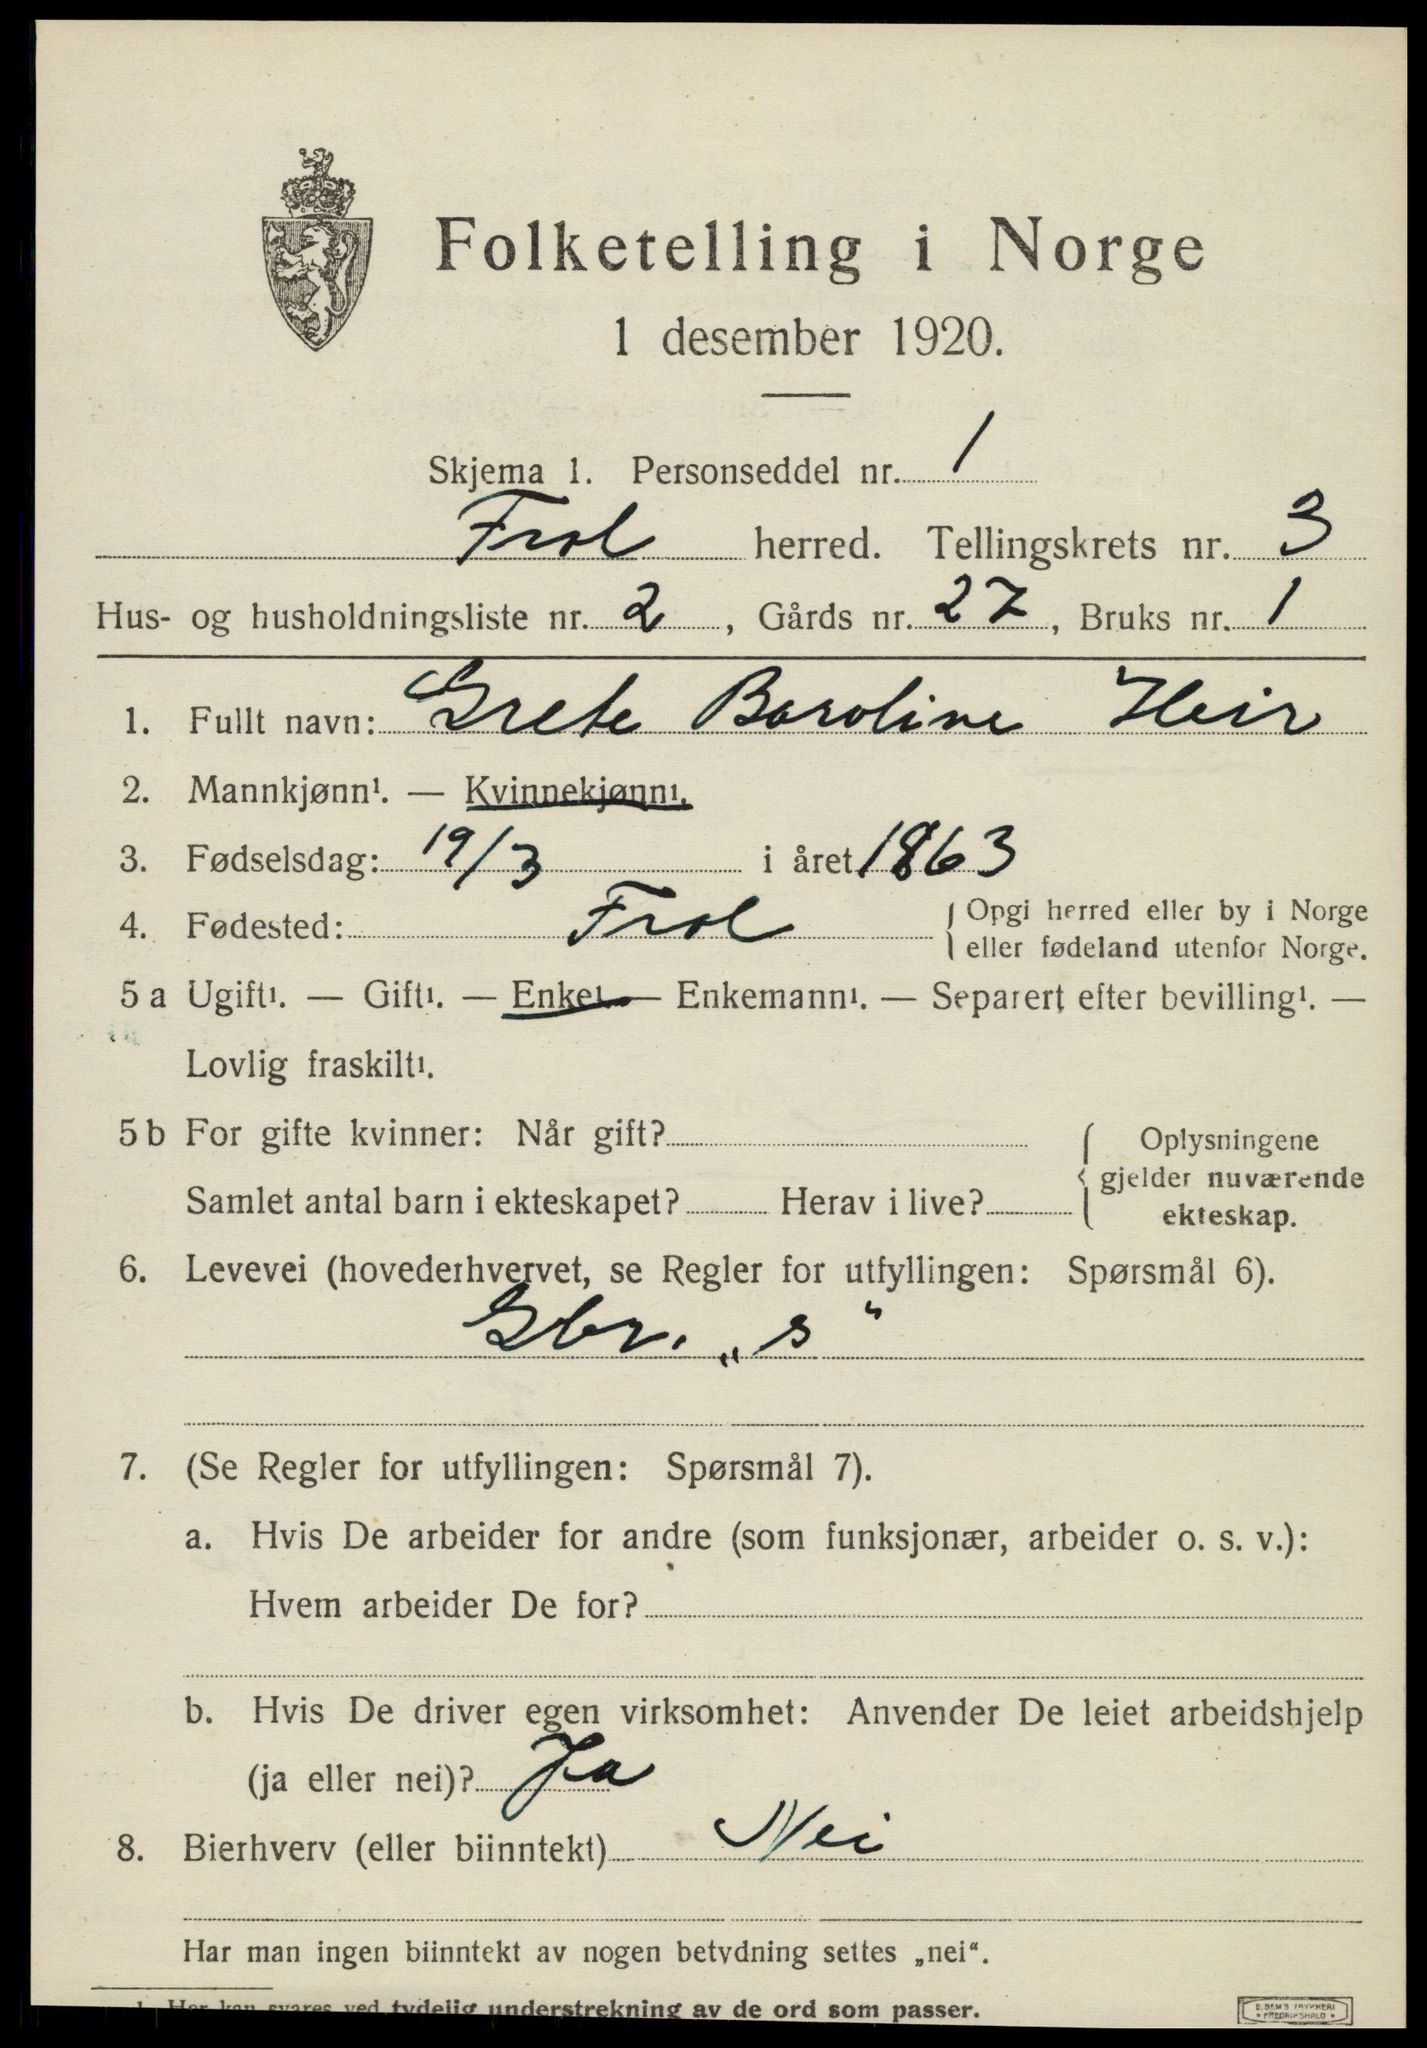 Folketelling i Norge
1 desember 1920.
Skjema 1. Personseddel nr. 1
Frol herred. Tellingskrets nr. 3
Hus- og husholdningsliste nr. 2, Gårds nr. 27, Bruks nr. 1
1. Fullt navn: Grete Baroline Heir
2. Mannkjønn¹. — Kvinnekjønn¹.
3. Fødselsdag: 19/3 i året 1863
4. Fødested: Frol { Opgi herred eller by i Norge
eller fødeland utenfor Norge.
5 a Ugift¹. — Gift¹. — Enke¹. — Enkemann¹. — Separert efter bevilling¹. —
Lovlig fraskilt¹.
5 b For gifte kvinner: Når gift?
Samlet antal barn i ekteskapet? Herav i live?
{ Oplysningene
gjelder nuværende
ekteskap.
6. Levevei (hovederhvervet, se Regler for utfyllingen: Spørsmål 6).
Gbr. „s“
7. (Se Regler for utfyllingen: Spørsmål 7).
a. Hvis De arbeider for andre (som funksjonær, arbeider o. s. v.):
Hvem arbeider De for?
b. Hvis De driver egen virksomhet: Anvender De leiet arbeidshjelp
(ja eller nei)? Ja
8. Bierhverv (eller biinntekt) Nei
Har man ingen biinntekt av nogen betydning settes „nei“.
1. Her kan svares ved tydelig understrekning av de ord som passer.
E. SEM'S TRYKKERI
FREDRIKSHALD